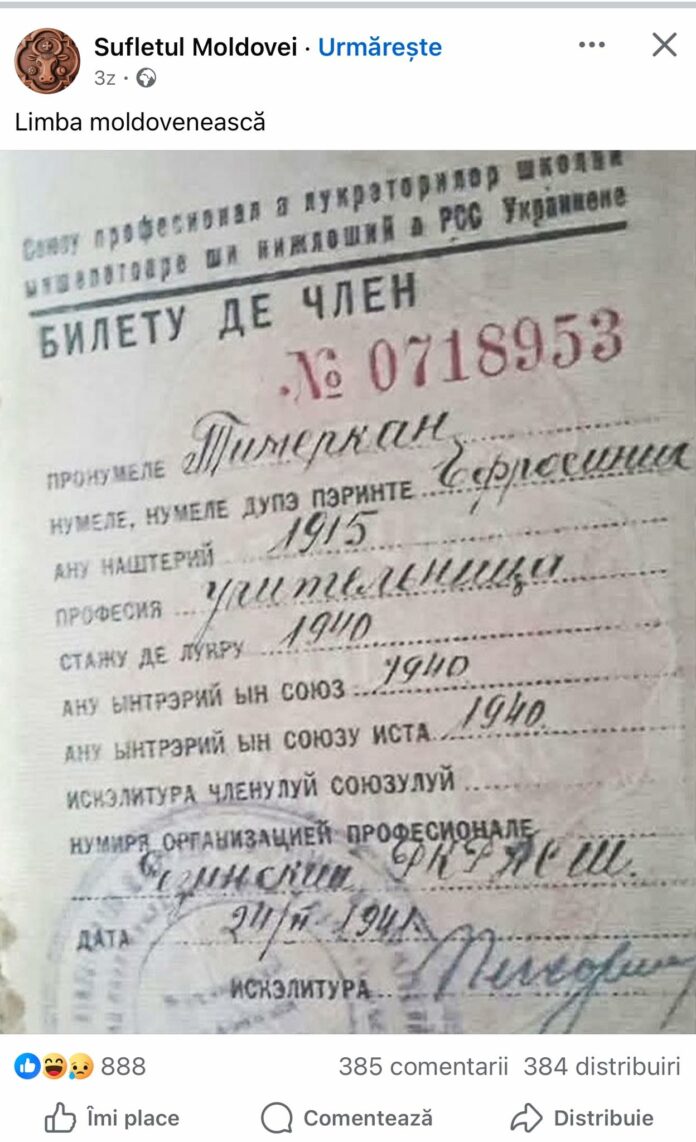 Sufletul Moldovei · Urmărește
3z
Limba moldovenească
Союзу професионал а лукраторилор школий
ыншепэтоаре ши нижлоший а РСС Украинене
БИЛЕТУ ДЕ ЧЛЕН
№ 0718953
ПРОНУМЕЛЕ Тимеркан
НУМЕЛЕ, НУМЕЛЕ ДУПЭ ПЭРИНТЕ Ефросиния
АНУ НАШТЕРИЙ 1915
ПРОФЕСИЯ учительница
СТАЖУ ДЕ ЛУКРУ 1940
АНУ ЫНТРЭРИЙ ЫН СОЮЗ 1940
АНУ ЫНТРЭРИЙ ЫН СОЮЗУ ИСТА 1940
ИСКЭЛИТУРА ЧЛЕНУЛУЙ СОЮЗУЛУЙ
НУМИРЯ ОРГАНИЗАЦИЕЙ ПРОФЕСИОНАЛЕ
ДАТА 24/II 1941
ИСКЭЛИТУРА
888
385 comentarii 384 distribuiri
Îmi place Comentează Distribuie